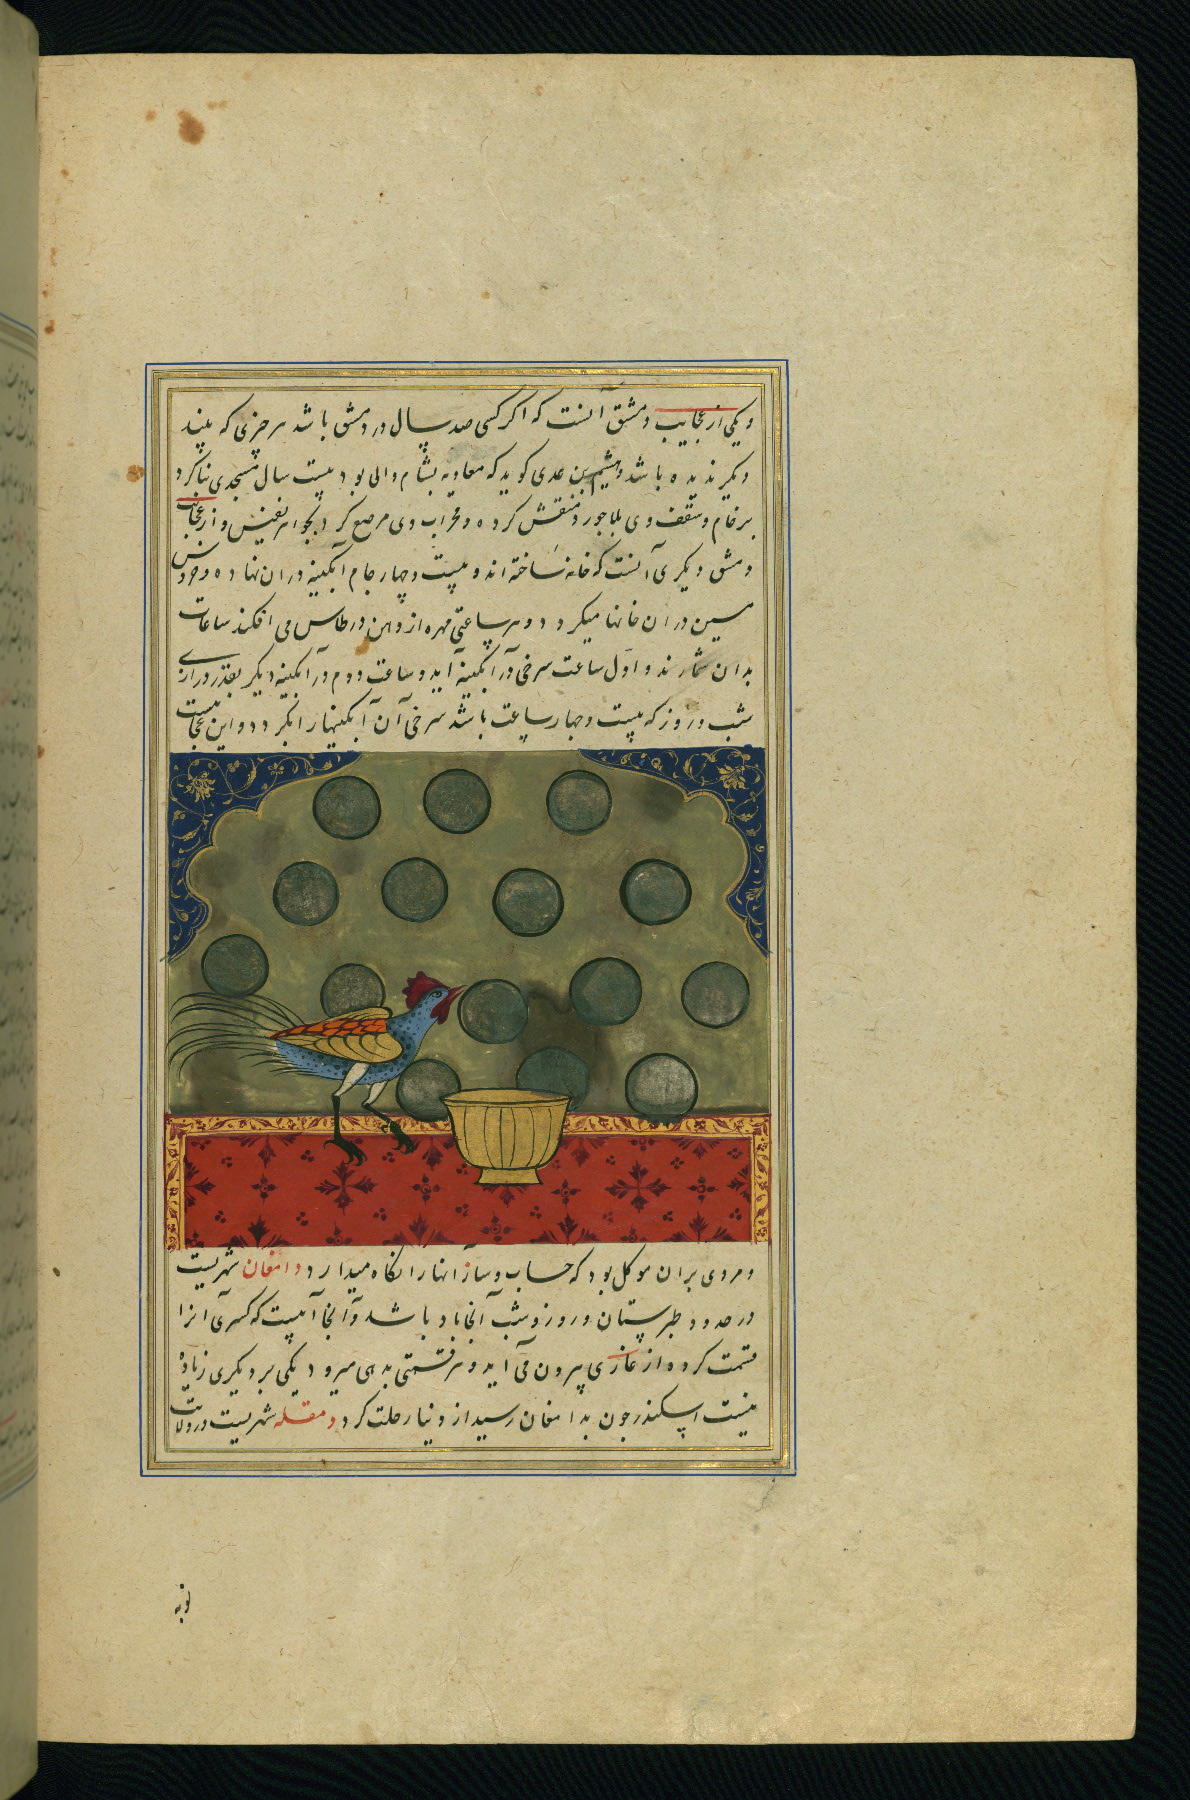 و یکی از عجایب دمشق آنست که اگر کسی صد سال در دمشق باشد هر چیزی که بیند
دیگر ندیده باشد و هیثم بن عدی گوید که معاویه بشام والی بود بیست سال مسجدی بنا کرد
برخام و سقف وی بلاجورد منقش کرده و محراب وی مرصع کرد بجواهر نفیس و از عجایب
دمشق دیگری آنست که خانه ساخته‌اند و بیست و چهار جام آبگینه در ان نهاده و خروس
مسین در ان خانها میگردد و هر ساعتی مهره از دهن در طاس می افکند ساعات
بدان شمارند و اول ساعت سرخی در آبگینه آید و ساعت دوم در آبگینه دیگر بقدر درازی
شب و روز که بیست و چهار ساعت باشد سرخی آن آبگینها را بگردد و این عجایبست
و مردی بران موکل بود که حساب و ساز انها را نگاه میدارد دامغان شهریست
در حدود طبرستان و روز و شب آنجا باد باشد و آنجا آبیست که کسری آنرا
قسمت کرده از غاری بیرون می آید و هر قسمتی بدهی میرود یکی بر دیگری زیاده
نیست اسکندر چون بدامغان رسید از دنیا رحلت کرد دمقله شهریست در ولایت
نوبه